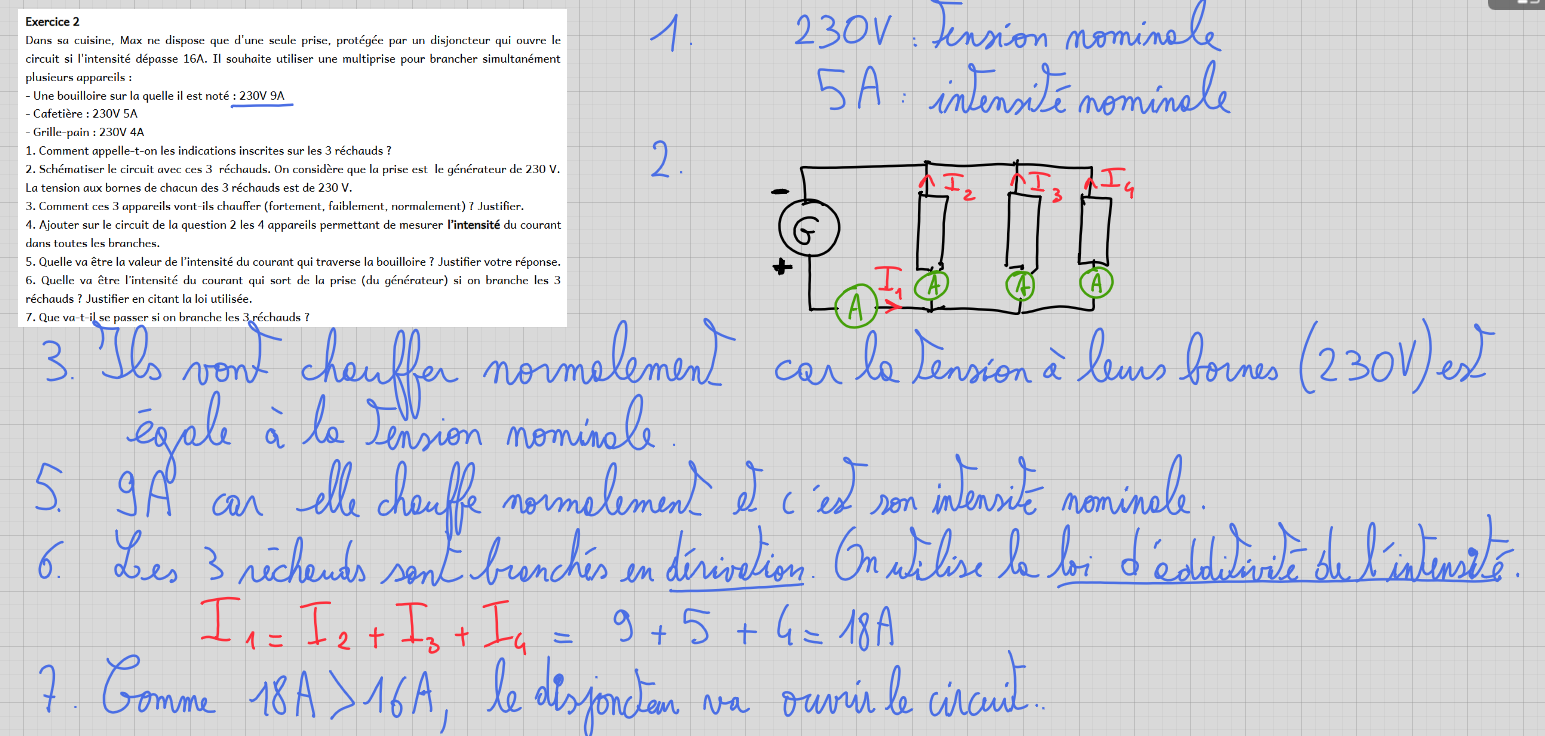 Exercice 2
Dans sa cuisine, Max ne dispose que d'une seule prise, protégée par un disjoncteur qui ouvre le
circuit si l'intensité dépasse 16A. Il souhaite utiliser une multiprise pour brancher simultanément
plusieurs appareils :
- Une bouilloire sur la quelle il est noté : 230V 9A
- Cafetière : 230V 5A
- Grille-pain : 230V 4A
1. Comment appelle-t-on les indications inscrites sur les 3 réchauds ?
2. Schématiser le circuit avec ces 3 réchauds. On considère que la prise est le générateur de 230 V.
La tension aux bornes de chacun des 3 réchauds est de 230 V.
3. Comment ces 3 appareils vont-ils chauffer (fortement, faiblement, normalement) ? Justifier.
4. Ajouter sur le circuit de la question 2 les 4 appareils permettant de mesurer l'intensité du courant
dans toutes les branches.
5. Quelle va être la valeur de l'intensité du courant qui traverse la bouilloire ? Justifier votre réponse.
6. Quelle va être l'intensité du courant qui sort de la prise (du générateur) si on branche les 3
réchauds ? Justifier en citant la loi utilisée.
7. Que va-t-il se passer si on branche les 3 réchauds ?
1. 230V : Tension nominale
5A : intensité nominale
2.
- I2 I3 I4
G
+ I1
A A A A
3. Ils vont chauffer normalement car la tension à leurs bornes (230V) est
égale à la tension nominale.
5. 9A car elle chauffe normalement et c'est son intensité nominale.
6. Les 3 réchauds sont branchés en dérivation. On utilise la loi d'additivité de l'intensité.
I1 = I2 + I3 + I4 = 9 + 5 + 4 = 18A
7. Comme 18A > 16A, le disjoncteur va ouvrir le circuit..